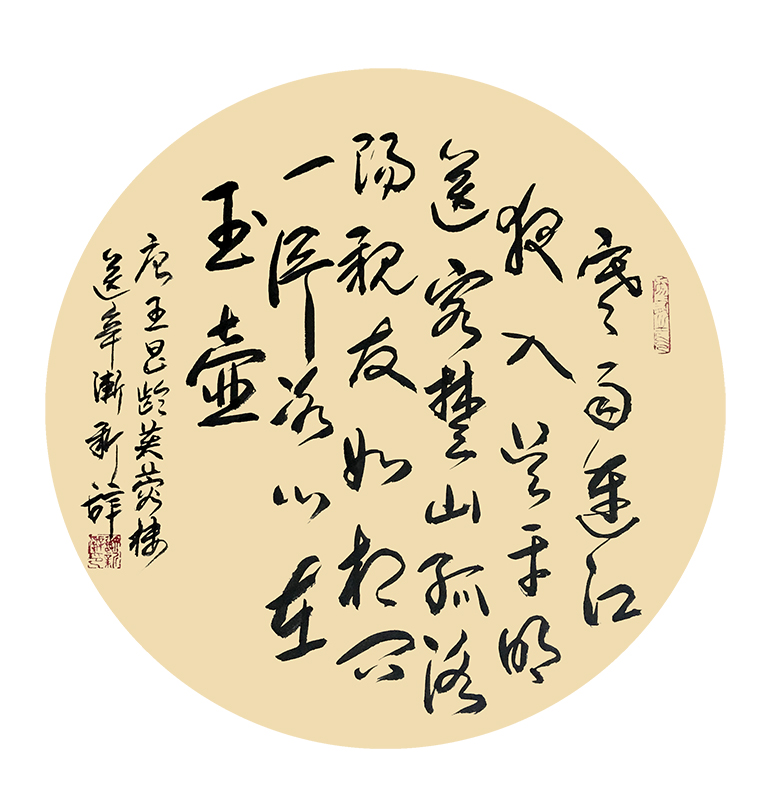 寒雨連江
夜入吳平明
送客楚山孤洛
陽親友如相問
一片冰心在
玉壺
唐王昌齡芙蓉樓
送辛漸 新辭